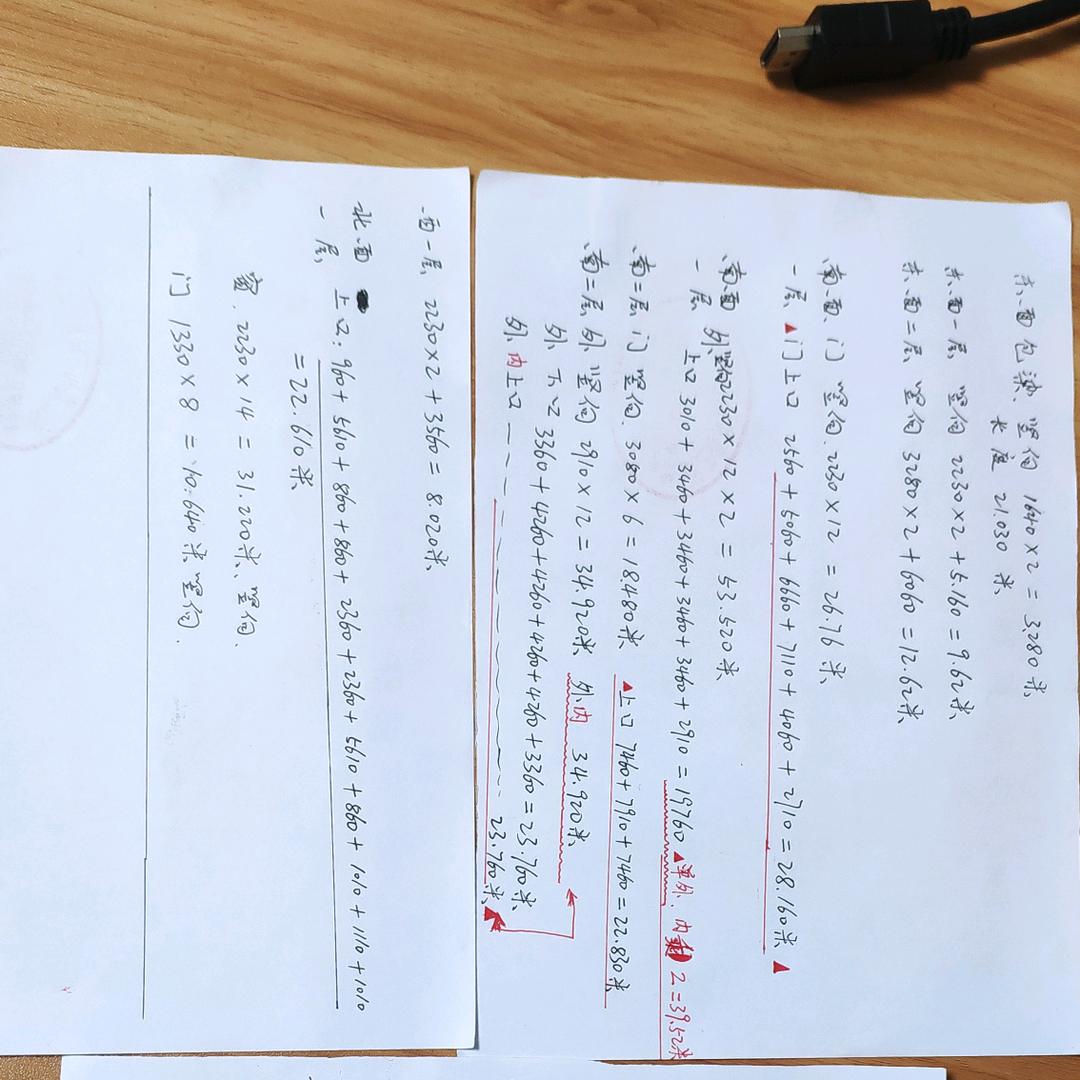 东面包梁、竖向 1640×2 = 3280米
长度 21.030米
东面一层 竖向 2230×2+5.160=9.62米
东面二层 竖向 3280×2+6060=12.62米
南面、门 竖向.2230×12 = 26.76米
一层、▲门上口 2560+5060+6660+7110+4060+2710=28.160米▲
南面 外.竖向2230×12×2 = 53.520米
一层 上口 3010+3460+3460+3460+3460+2910=19760▲单外.内 2=39.52米
南二层 门 竖向. 3080×6=18480米 ▲上口 7460+7910+7460=22.830米
南二层 外 竖向 2910×12=34.920米 外内 34.920米
外 下口 3360+4260+4260+4260+4260+3360=23.760米
外 内上口 23.760米▲
西一层 2230×2+3560=8.020米
北面 上口: 960+5610+860+860+2360+2360+5610+860+1010+1110+1010
一层
=22.610米
窗. 2230×14=31.220米、竖向.
门 1330×8 = 10.640米 竖向.